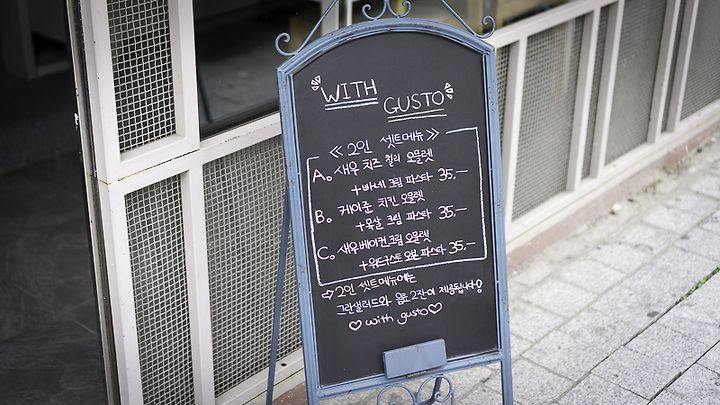 WITH
GUSTO
≪ 2인 셋트메뉴 ≫
A. 새우 치즈 칠리 오믈렛
+ 빠네 크림 파스타 35,-
B. 케이준 치킨 오믈렛
+ 목살 크림 파스타 35,-
C. 새우베이컨크림 오믈렛
+ 위드구스토 오븐 파스타 35,-
⇨ 2인 셋트메뉴에는
그린샐러드와 음료 2잔이 제공됩니다!
♡ with gusto ♡